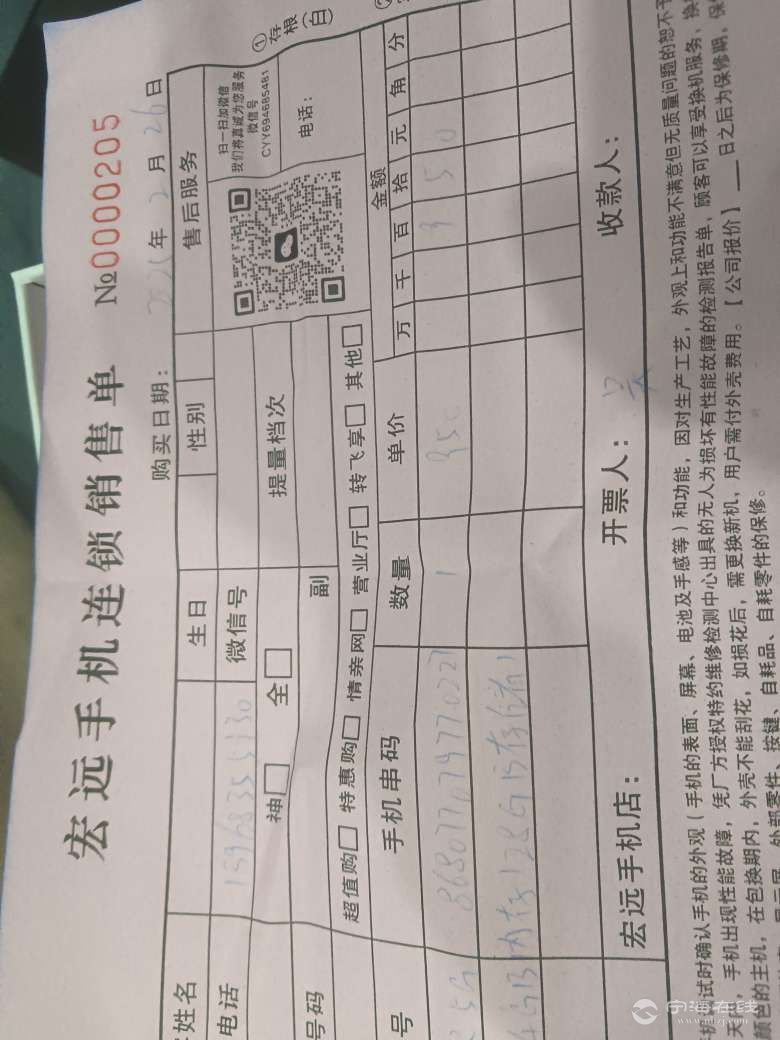 宏远手机连锁销售单 №0000205
①存根(白)
购买日期： 年 2 月 26 日
姓名 生日 性别 售后服务
电话 15968355330 微信号
扫一扫加微信
我们将真诚为您服务
微信号
CYY694685481
电话：
神□ 全□ 提量档次
号码 副
超值购□ 特惠购□ 情亲网□ 营业厅□ 转飞享□ 其他□
号 手机串码 数量 单价 金额
万 千 百 拾 元 角 分
5G 1 950 9 5 0
4GB内存128GB存储
宏远手机店： 开票人： 收款人：
试时确认手机的外观（手机的表面、屏幕、电池及手感等）和功能，因对生产工艺，外观上和功能不满意但无质量问题的恕不
手机出现性能故障，凭厂方授权特约维修检测中心出具的无人为损坏有性能故障的检测报告单，顾客可以享受换机服务，换
颜色的主机，在包换期内，外壳不能刮花，如损花后，需更换新机，用户需付外壳费用。【公司报价】 日之后为保修期，保
外部零件、按键、自耗品、自耗零件的保修。
宁海在线